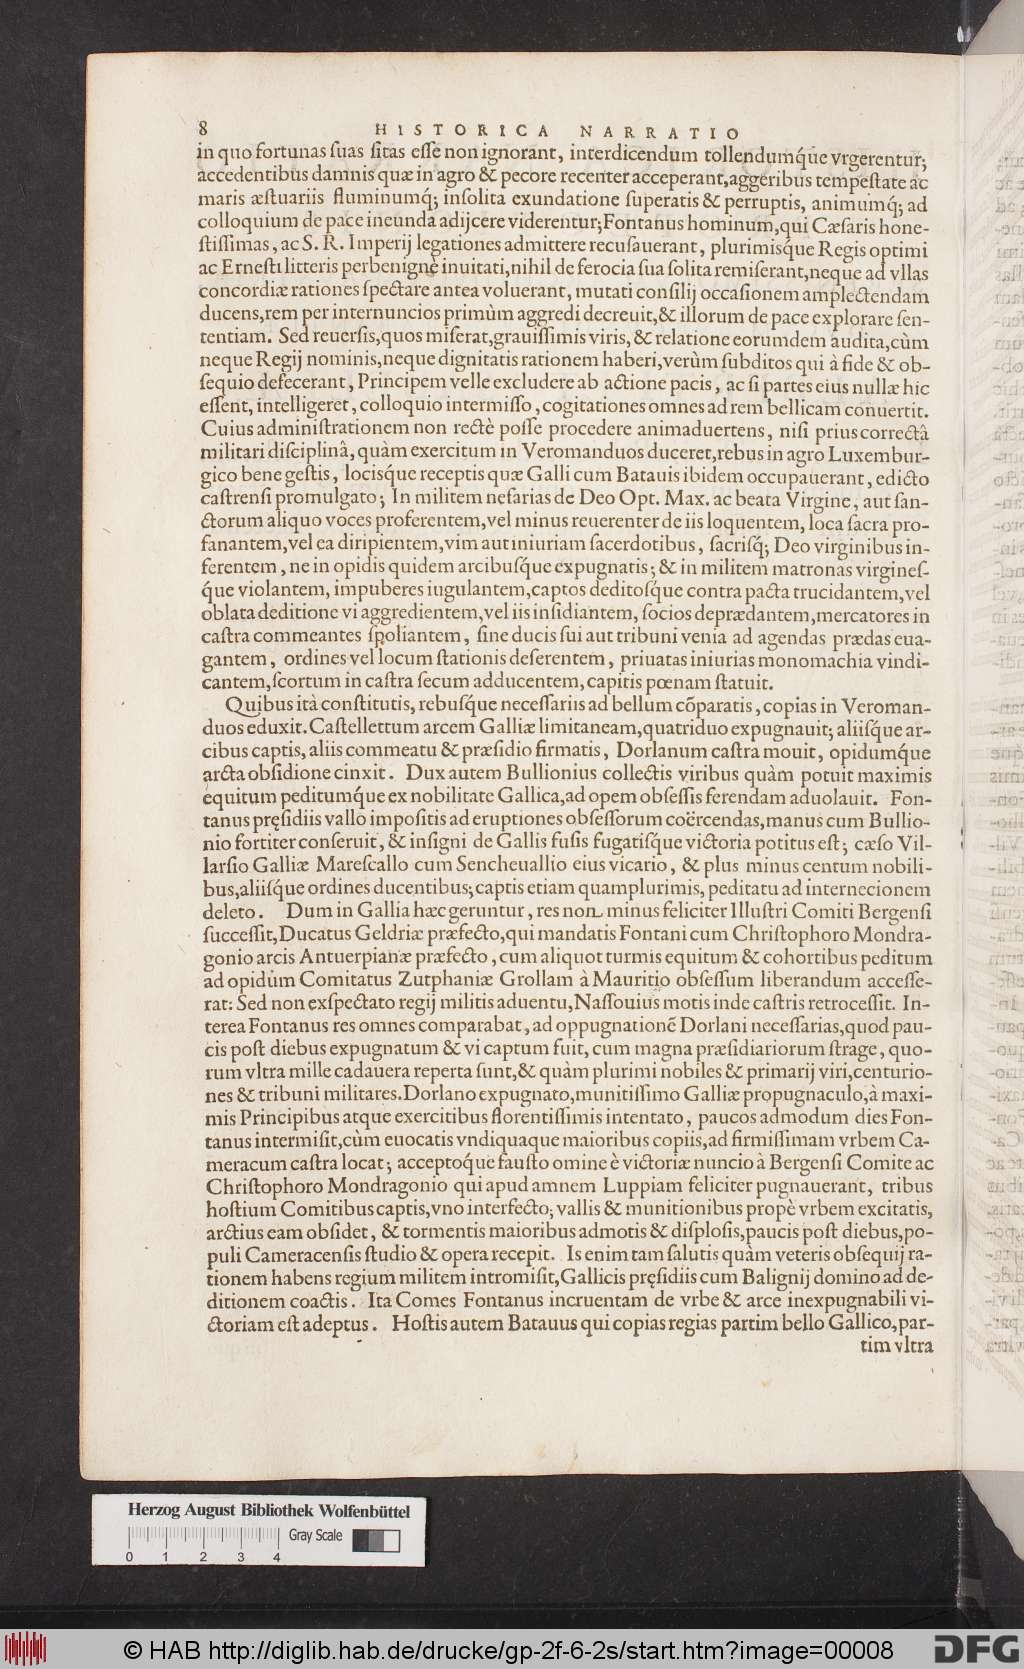 8 HISTORICA NARRATIO
in quo fortunas ſuas ſitas eſſe non ignorant, interdicendum tollendumq́ue vrgerentur;
accedentibus damnis quæ in agro & pecore recenter acceperant, aggeribus tempeſtate ac
maris æſtuariis fluminumq́; inſolita exundatione ſuperatis & perruptis, animumq́; ad
colloquium de pace ineunda adijcere viderentur; Fontanus hominum, qui Cæſaris hone-
ſtiſſimas, ac S. R. Imperij legationes admittere recuſauerant, plurimisq́ue Regis optimi
ac Erneſti litteris perbenignè inuitati, nihil de ferocia ſua ſolita remiſerant, neque ad vllas
concordiæ rationes ſpectare antea voluerant, mutati conſilij occaſionem amplectendam
ducens, rem per internuncios primùm aggredi decreuit, & illorum de pace explorare ſen-
tentiam. Sed reuerſis, quos miſerat, grauiſſimis viris, & relatione eorumdem audita, cùm
neque Regij nominis, neque dignitatis rationem haberi, verùm ſubditos qui à fide & ob-
ſequio defecerant, Principem velle excludere ab actione pacis, ac ſi partes eius nullæ hic
eſſent, intelligeret, colloquio intermiſſo, cogitationes omnes ad rem bellicam conuertit.
Cuius adminiſtrationem non rectè poſſe procedere animaduertens, niſi prius correctâ
militari diſciplinâ, quàm exercitum in Veromanduos duceret, rebus in agro Luxembur-
gico bene geſtis, locisq́ue receptis quæ Galli cum Batauis ibidem occupauerant, edicto
caſtrenſi promulgato; In militem nefarias de Deo Opt. Max. ac beata Virgine, aut ſan-
ctorum aliquo voces proferentem, vel minus reuerenter de iis loquentem, loca ſacra pro-
fanantem, vel ea diripientem, vim aut iniuriam ſacerdotibus, ſacriſq́; Deo virginibus in-
ferentem, ne in opidis quidem arcibuſq́ue expugnatis; & in militem matronas virgineſ-
q́ue violantem, impuberes iugulantem, captos deditoſq́ue contra pacta trucidantem, vel
oblata deditione vi aggredientem, vel iis inſidiantem, ſocios deprædantem, mercatores in
caſtra commeantes ſpoliantem, ſine ducis ſui aut tribuni venia ad agendas prædas eua-
gantem, ordines vel locum ſtationis deſerentem, priuatas iniurias monomachia vindi-
cantem, ſcortum in caſtra ſecum adducentem, capitis pœnam ſtatuit.
Quibus ità conſtitutis, rebuſq́ue neceſſariis ad bellum cōparatis, copias in Veroman-
duos eduxit. Caſtellettum arcem Galliæ limitaneam, quatriduo expugnauit; aliiſq́ue ar-
cibus captis, aliis commeatu & præſidio firmatis, Dorlanum caſtra mouit, opidumq́ue
arcta obſidione cinxit. Dux autem Bullionius collectis viribus quàm potuit maximis
equitum peditumq́ue ex nobilitate Gallica, ad opem obſeſſis ferendam aduolauit. Fon-
tanus pręſidiis vallo impoſitis ad eruptiones obſeſſorum coërcendas, manus cum Bullio-
nio fortiter conſeruit, & inſigni de Gallis fuſis fugatiſq́ue victoria potitus eſt; cæſo Vil-
larſio Galliæ Mareſcallo cum Sencheuallio eius vicario, & plus minus centum nobili-
bus, aliiſq́ue ordines ducentibus; captis etiam quamplurimis, peditatu ad internecionem
deleto. Dum in Gallia hæc geruntur, res non minus feliciter Illuſtri Comiti Bergenſi
ſucceſſit, Ducatus Geldriæ præfecto, qui mandatis Fontani cum Chriſtophoro Mondra-
gonio arcis Antuerpianæ præfecto, cum aliquot turmis equitum & cohortibus peditum
ad opidum Comitatus Zutphaniæ Grollam à Mauritio obſeſſum liberandum acceſſe-
rat: Sed non exſpectato regij militis aduentu, Naſſouius motis inde caſtris retroceſſit. In-
terea Fontanus res omnes comparabat, ad oppugnationē Dorlani neceſſarias, quod pau-
cis poſt diebus expugnatum & vi captum fuit, cum magna præſidiariorum ſtrage, quo-
rum vltra mille cadauera reperta ſunt, & quàm plurimi nobiles & primarij viri, centurio-
nes & tribuni militares. Dorlano expugnato, munitiſſimo Galliæ propugnaculo, à maxi-
mis Principibus atque exercitibus florentiſſimis intentato, paucos admodum dies Fon-
tanus intermiſit, cùm euocatis vndiquaque maioribus copiis, ad firmiſſimam vrbem Ca-
meracum caſtra locat; acceptoq́ue fauſto omine è victoriæ nuncio à Bergenſi Comite ac
Chriſtophoro Mondragonio qui apud amnem Luppiam feliciter pugnauerant, tribus
hoſtium Comitibus captis, vno interfecto; vallis & munitionibus propè vrbem excitatis,
arctius eam obſidet, & tormentis maioribus admotis & diſploſis, paucis poſt diebus, po-
puli Cameracenſis ſtudio & opera recepit. Is enim tam ſalutis quàm veteris obſequij ra-
tionem habens regium militem intromiſit, Gallicis pręſidiis cum Balignij domino ad de-
ditionem coactis. Ita Comes Fontanus incruentam de vrbe & arce inexpugnabili vi-
ctoriam eſt adeptus. Hoſtis autem Batauus qui copias regias partim bello Gallico, par-
tim vltra
Herzog August Bibliothek Wolfenbüttel
Gray Scale
0 1 2 3 4
© HAB http://diglib.hab.de/drucke/gp-2f-6-2s/start.htm?image=00008
DFG